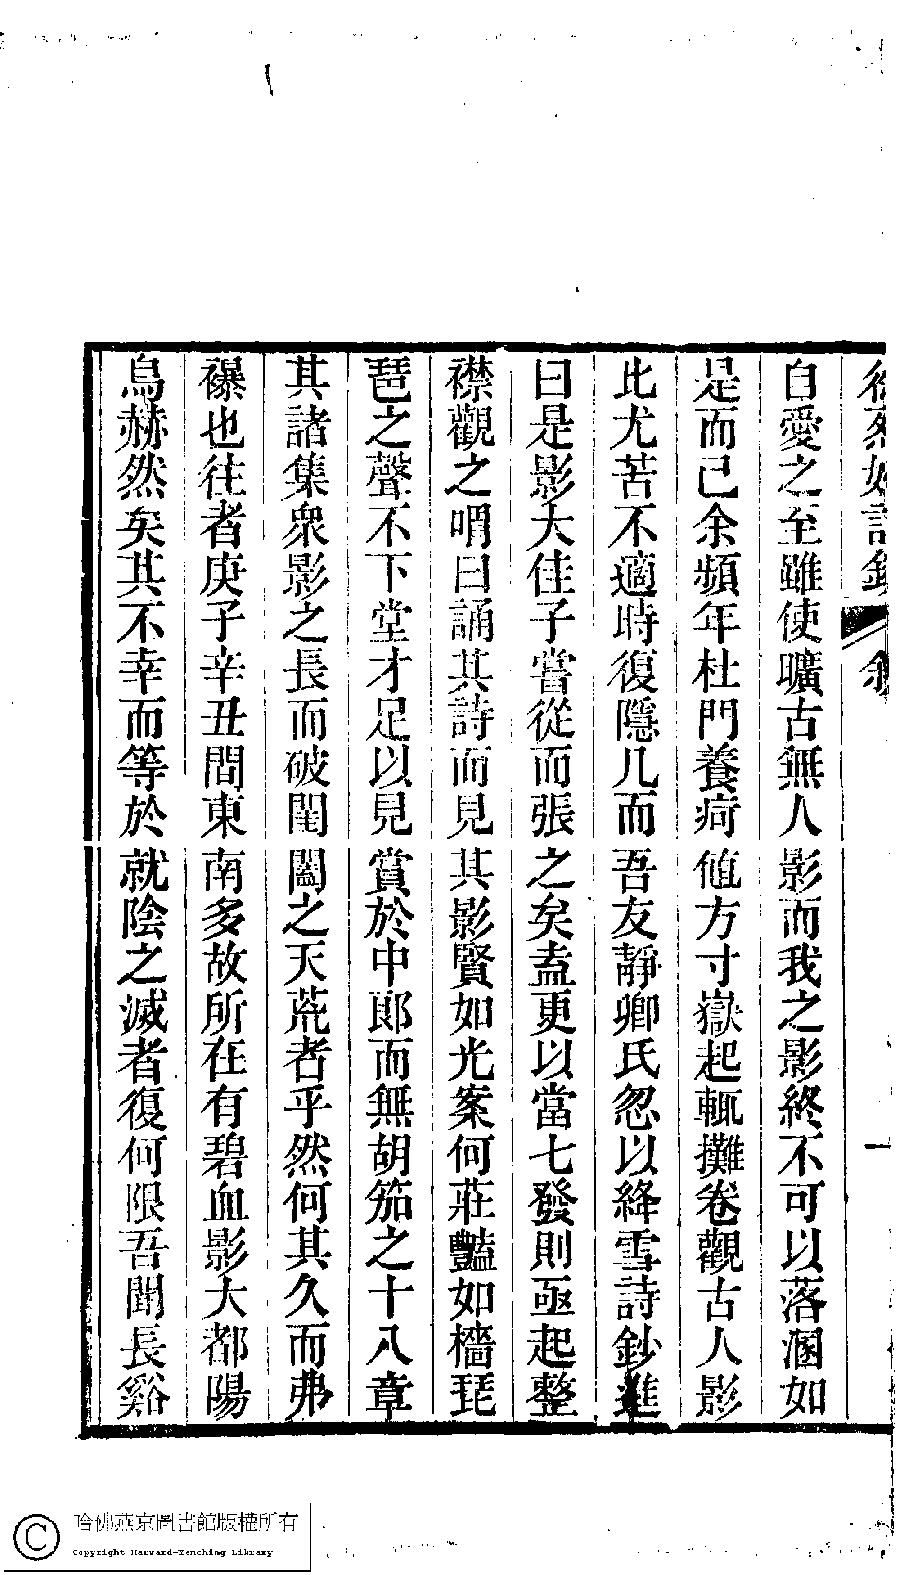 自愛之至雖使曠古無人影而我之影終不可以落溷如
是而已余頻年杜門養疴値方寸嶽起輒攤卷觀古人影
比尤苦不適時復隱几而吾友靜卿氏忽以絳雪詩鈔進
曰是影大佳子嘗從而張之矣盍更以當七發則亟起整
襟觀之喟曰誦其詩而見其影賢如光案何莊豔如檣琵
琶之聲不下堂才足以見賞於中郞而無胡笳之十八章
其諸集衆影之長而破閨闥之天荒者乎然何其久而弗
襮也往者庚子辛丑間東南多故所在有碧血影大都陽
烏赫然矣其不幸而等於就陰之滅者復何限吾聞長谿
哈佛燕京圖書館版權所有
Copyright Harvard-Yenching Library